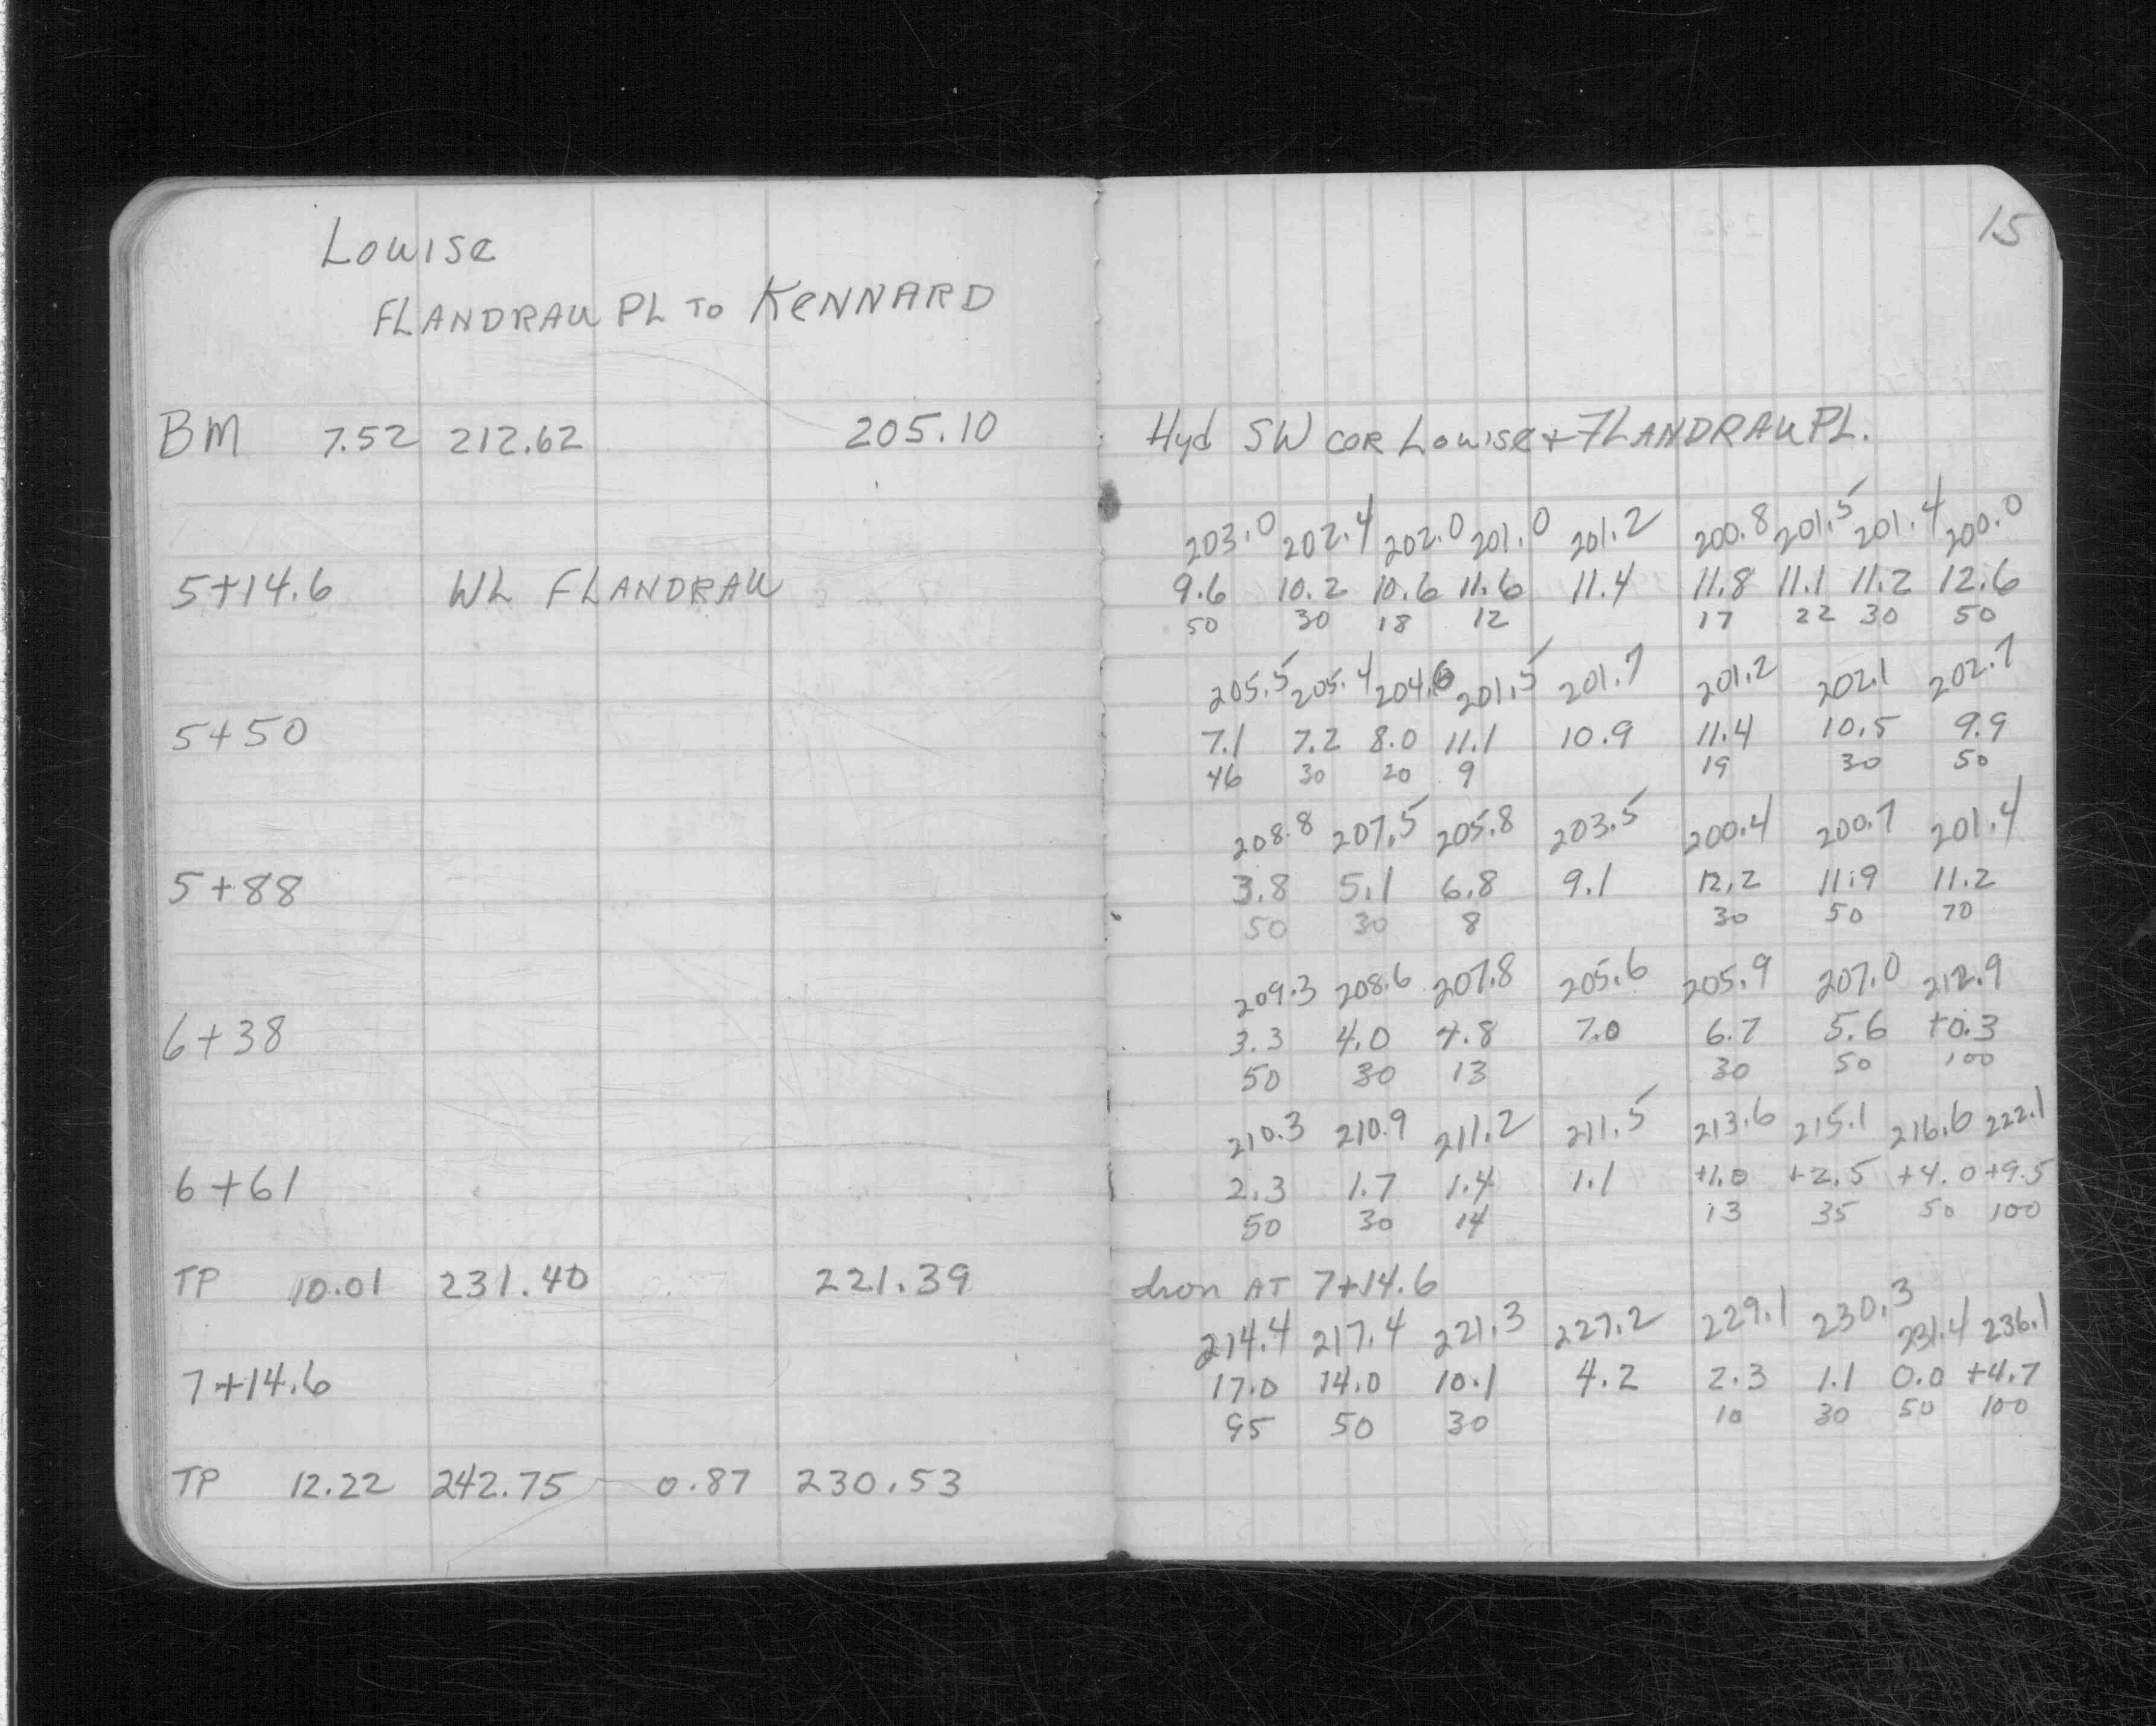 Louise
FLANDRAU PL TO KENNARD
BM 7.52 212.62 205.10
5+14.6 WL FLANDRAU
5+50
5+88
6+38
6+61
TP 10.01 231.40 221.39
7+14.6
TP 12.22 242.75 0.87 230.53
15
Hyd SW COR Louise + FLANDRAU PL.
203.0 202.4 202.0 201.0 201.2 200.8 201.5 201.4 200.0
9.6 10.2 10.6 11.6 11.4 11.8 11.1 11.2 12.6
50 30 18 12 17 22 30 50
205.5 205.4 204.6 201.5 201.7 201.2 202.1 202.7
7.1 7.2 8.0 11.1 10.9 11.4 10.5 9.9
46 30 20 9 19 30 50
208.8 207.5 205.8 203.5 200.4 200.7 201.4
3.8 5.1 6.8 9.1 12.2 11.9 11.2
50 30 8 30 50 70
209.3 208.6 207.8 205.6 205.9 207.0 212.9
3.3 4.0 4.8 7.0 6.7 5.6 +0.3
50 30 13 30 50 100
210.3 210.9 211.2 211.5 213.6 215.1 216.6 222.1
2.3 1.7 1.4 1.1 +1.0 +2.5 +4.0 +9.5
50 30 14 13 35 50 100
Iron AT 7+14.6
214.4 217.4 221.3 227.2 229.1 230.3 231.4 236.1
17.0 14.0 10.1 4.2 2.3 1.1 0.0 +4.7
95 50 30 10 30 50 100